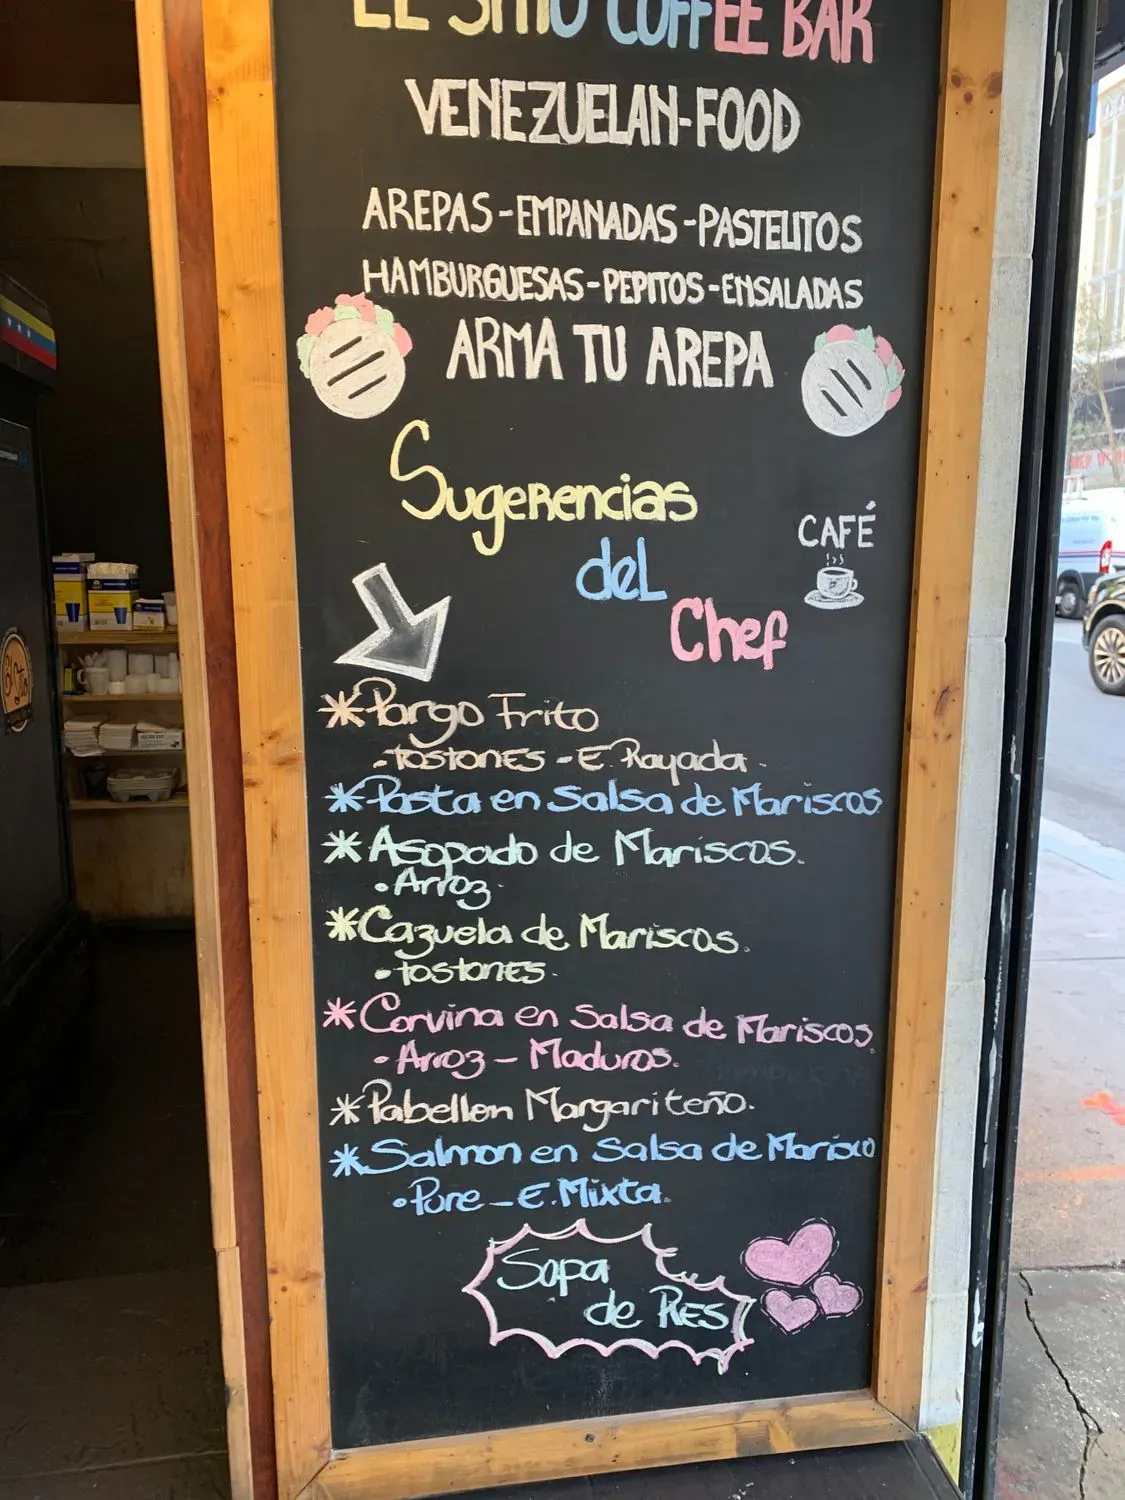 EL SITIO COFFEE BAR
VENEZUELAN-FOOD
AREPAS-EMPANADAS-PASTELITOS
HAMBURGUESAS-PEPITOS-ENSALADAS
ARMA TU AREPA
Sugerencias
del
Chef
CAFÉ
*Pargo Frito
-tostones - E. Rayada.
*Pasta en Salsa de Mariscos
*Asopado de Mariscos.
•Arroz.
*Cazuela de Mariscos.
•tostones.
*Corvina en Salsa de Mariscos.
•Arroz - Maduros.
*Pabellon Margariteño.
*Salmon en Salsa de Marisco
•Pure - E. Mixta.
Sopa
de Res